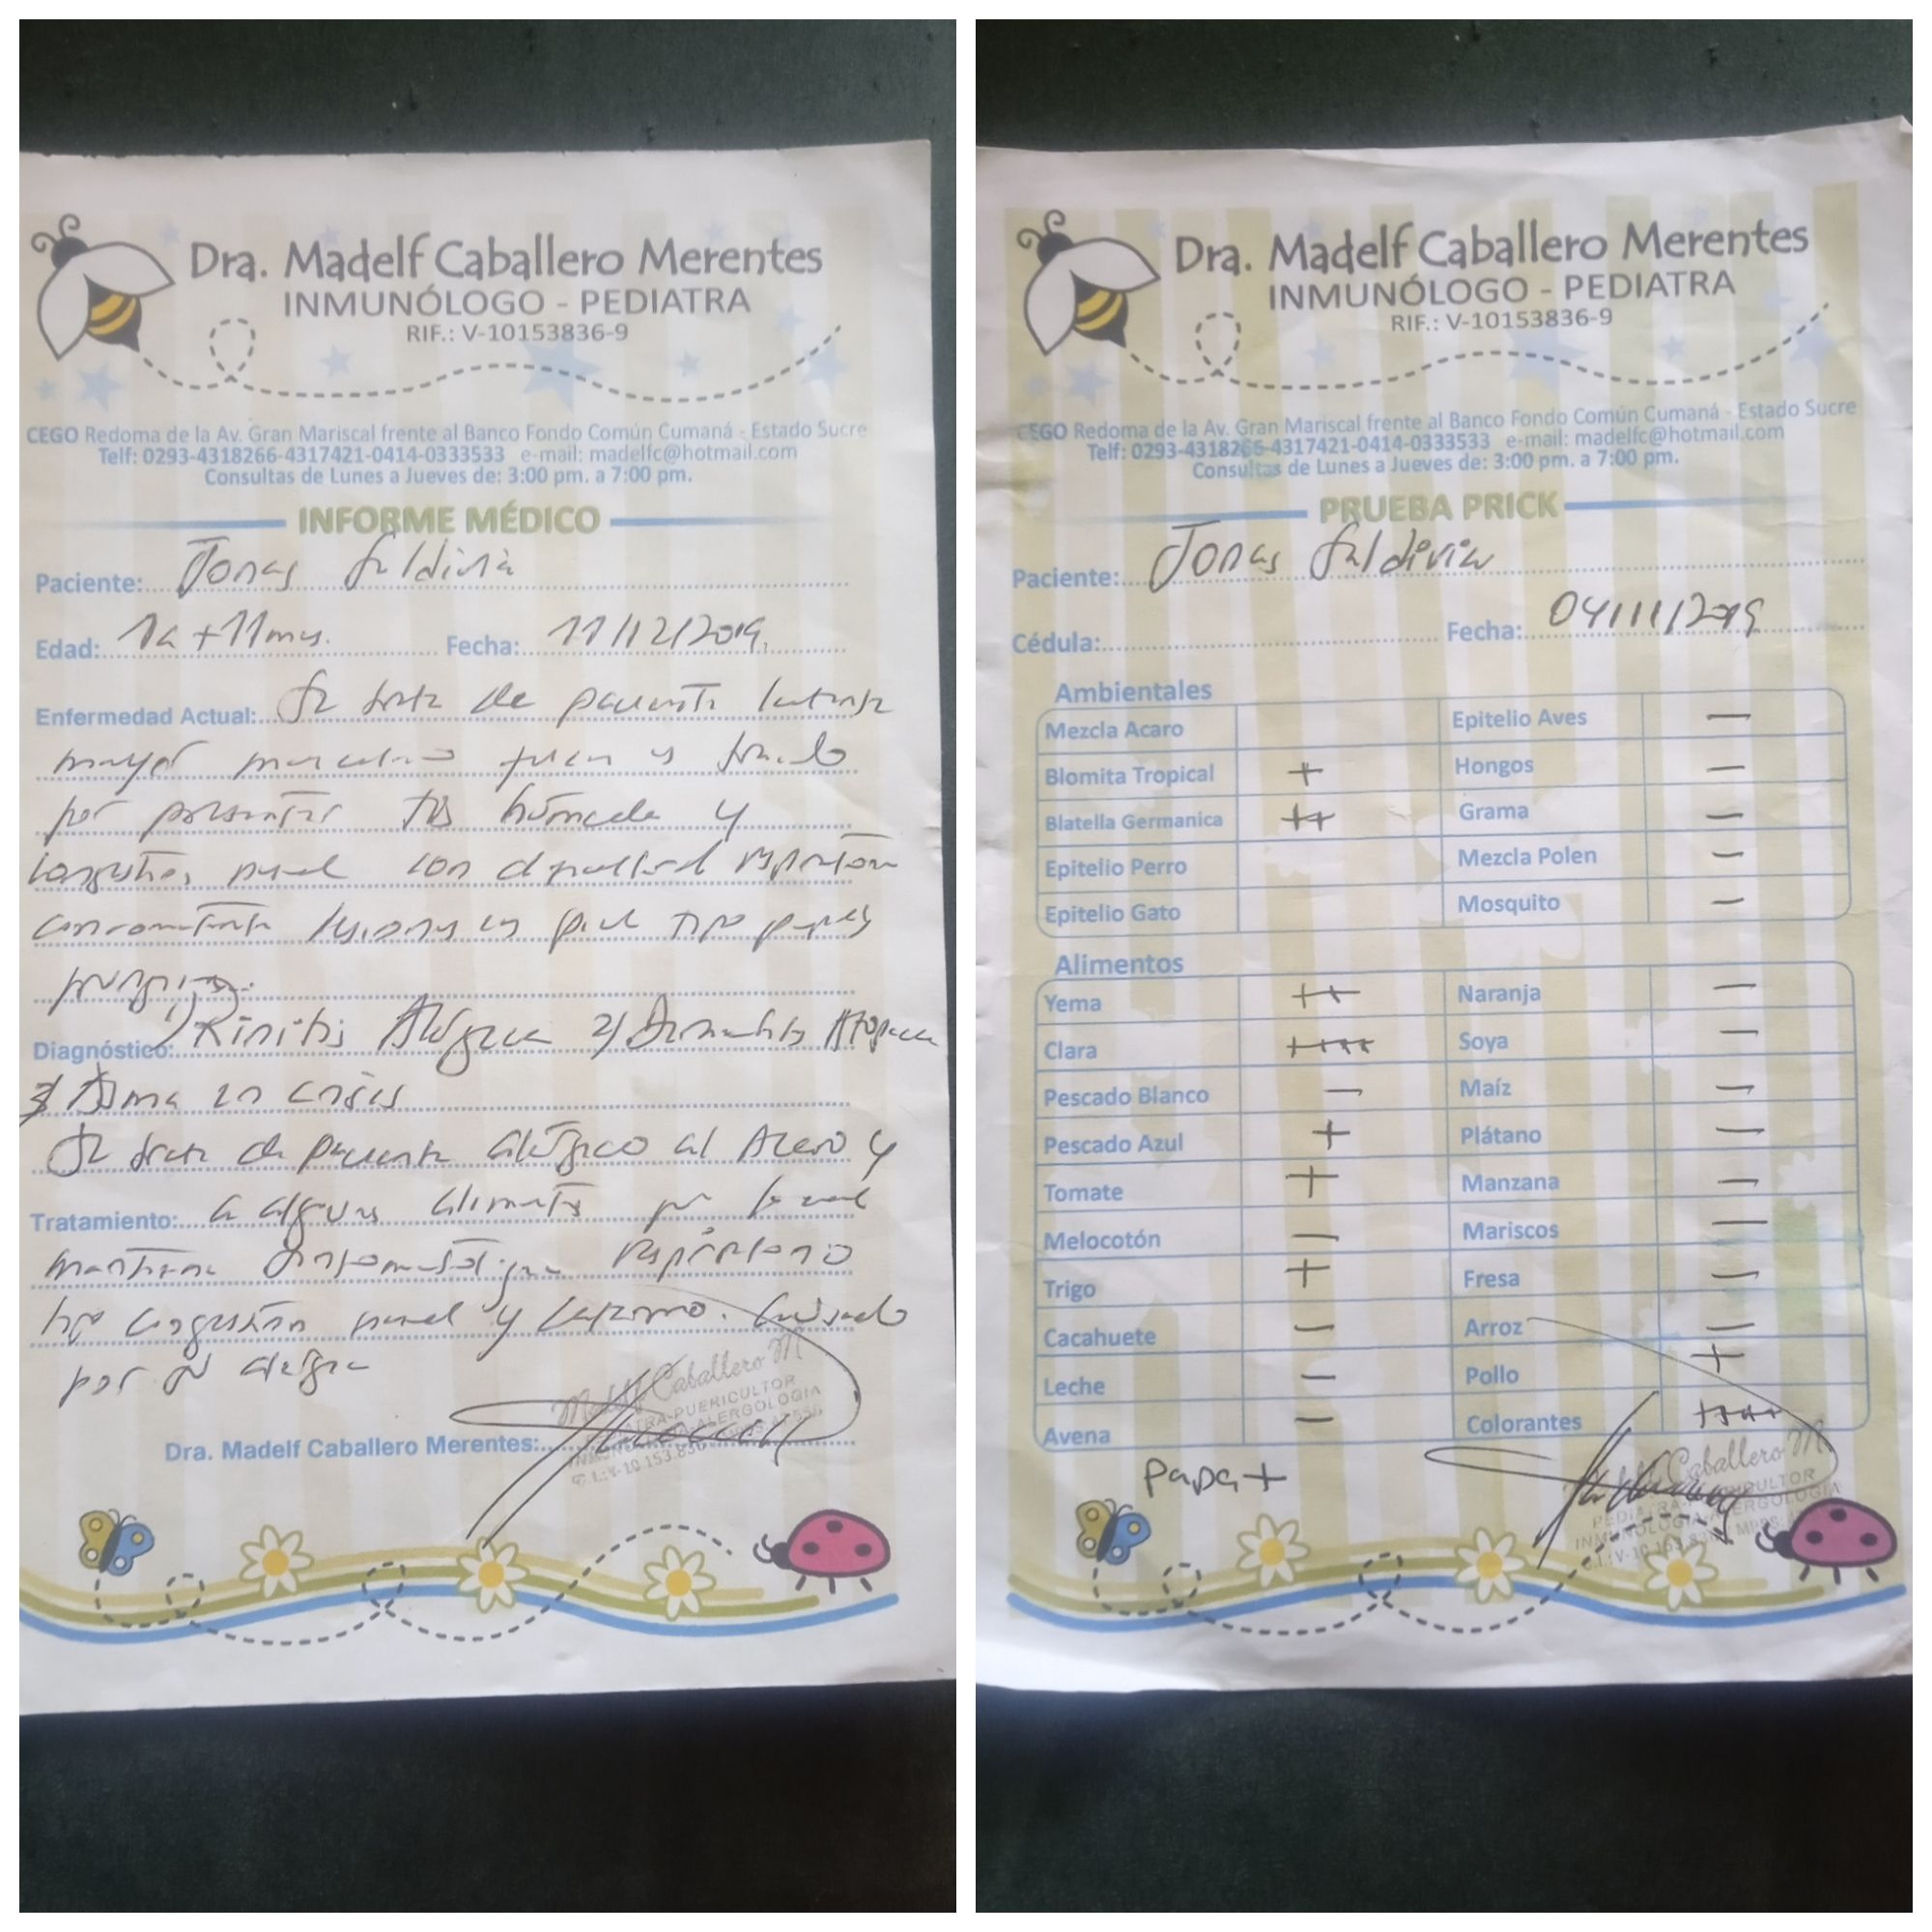 Dra. Madelf Caballero Merentes
INMUNÓLOGO - PEDIATRA
RIF.: V-10153836-9
CEGO Redoma de la Av. Gran Mariscal frente al Banco Fondo Común Cumaná - Estado Sucre
Telf: 0293-4318266-4317421-0414-0333533 e-mail: madelfc@hotmail.com
Consultas de Lunes a Jueves de: 3:00 pm. a 7:00 pm.
INFORME MÉDICO
Paciente: Jonas
Edad: 1a + 11 Fecha: 11/12/2019.
Enfermedad Actual: Se trata de paciente lactante
mayor masculino quien es traido
por presentar tos húmeda y
congestión nasal con dificultad
concomitante lesiones en piel tipo
Diagnóstico: 1) Rinitis Alérgica 2) Dermatitis Atópica
3/ Asma en crisis
Se trata de paciente alérgico al Acaro y
Tratamiento: a algunos alimentos por lo cual
mantiene respiratorio
tipo congestión nasal y
por su alergia
Dra. Madelf Caballero Merentes:
Caballero M
PUERICULTOR
ALERGOLOGIA
Dra. Madelf Caballero Merentes
INMUNÓLOGO - PEDIATRA
RIF.: V-10153836-9
CEGO Redoma de la Av. Gran Mariscal frente al Banco Fondo Común Cumaná - Estado Sucre
Telf: 0293-4318266-4317421-0414-0333533 e-mail: madelfc@hotmail.com
Consultas de Lunes a Jueves de: 3:00 pm. a 7:00 pm.
PRUEBA PRICK
Paciente: Jonas
Cédula: Fecha: 04/11/2019
Ambientales
Mezcla Acaro Epitelio Aves —
Blomita Tropical + Hongos —
Blatella Germanica ++ Grama —
Epitelio Perro Mezcla Polen —
Epitelio Gato Mosquito —
Alimentos
Yema ++ Naranja —
Clara ++++ Soya —
Pescado Blanco — Maíz —
Pescado Azul + Plátano —
Tomate + Manzana —
Melocotón — Mariscos —
Trigo + Fresa —
Cacahuete — Arroz —
Leche — Pollo +
Avena — Colorantes ++++
papa +
Caballero M